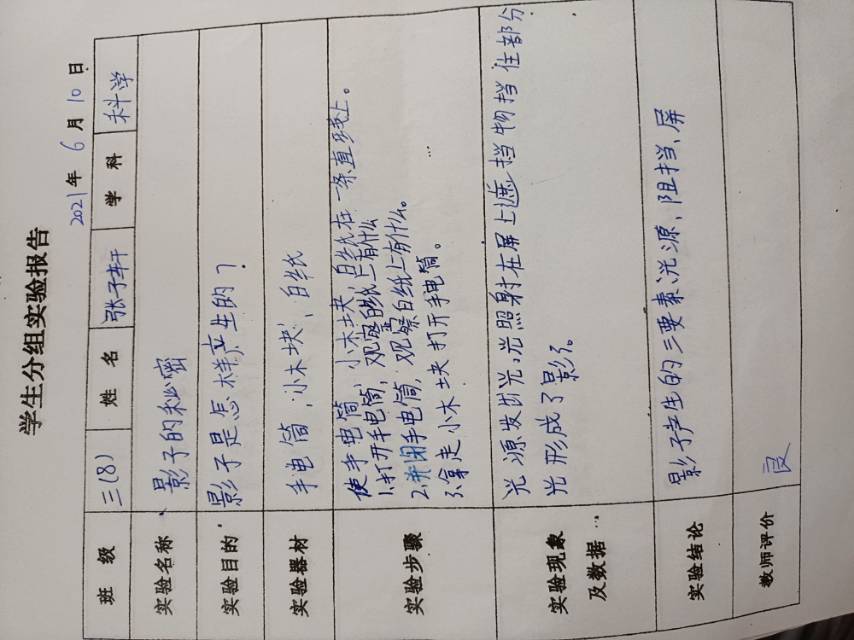 学生分组实验报告
2021年 6 月 10 日
班 级 三(8) 姓 名 张子轩 学 科 科学
实验名称 影子的秘密
实验目的 影子是怎样产生的?
实验器材 手电筒、小木块、白纸
实验步骤
使手电筒、小木块、白纸在一条直线上。
1.打开手电筒,观察白纸上有什么
2.关闭手电筒,观察白纸上有什么。
3.拿走小木块打开手电筒。
实验现象及数据
光源发出光,光照射在屏上遮挡物挡住部分
光形成了影子。
实验结论 影子产生的三要素:光源、阻挡、屏
教师评价 良